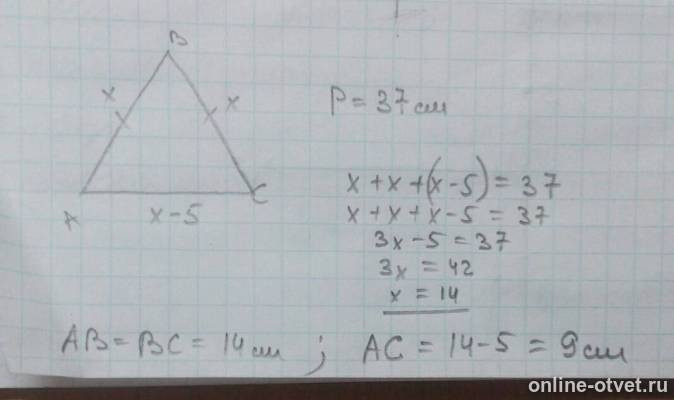 B
x x
A x-5 C
P = 37 см
x + x + (x - 5) = 37
x + x + x - 5 = 37
3x - 5 = 37
3x = 42
x = 14
AB = BC = 14 см ; AC = 14 - 5 = 9 см
online-otvet.ru